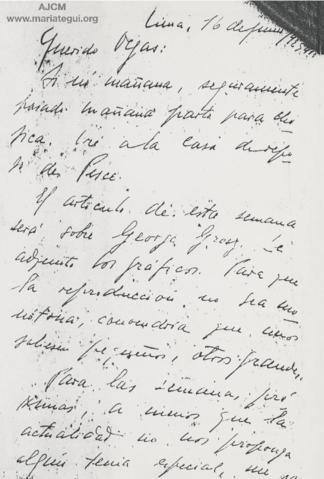 AJCM
www.mariategui.org
Lima, 16 de
Querido Vegas:
Si ni mañana, seguramente
pasado mañana parto para Cho
sica. Iré a la casa de repo
so de Pesce.
El artículo de esta semana
será sobre George Grosz. Le
adjunto los gráficos. Para que
la reproducción no sea mo
nótona, convendría que unos
saliesen pequeños, otros grandes.
Para las semanas pró
ximas, a menos que la
actualidad no nos proponga
algún tema especial,